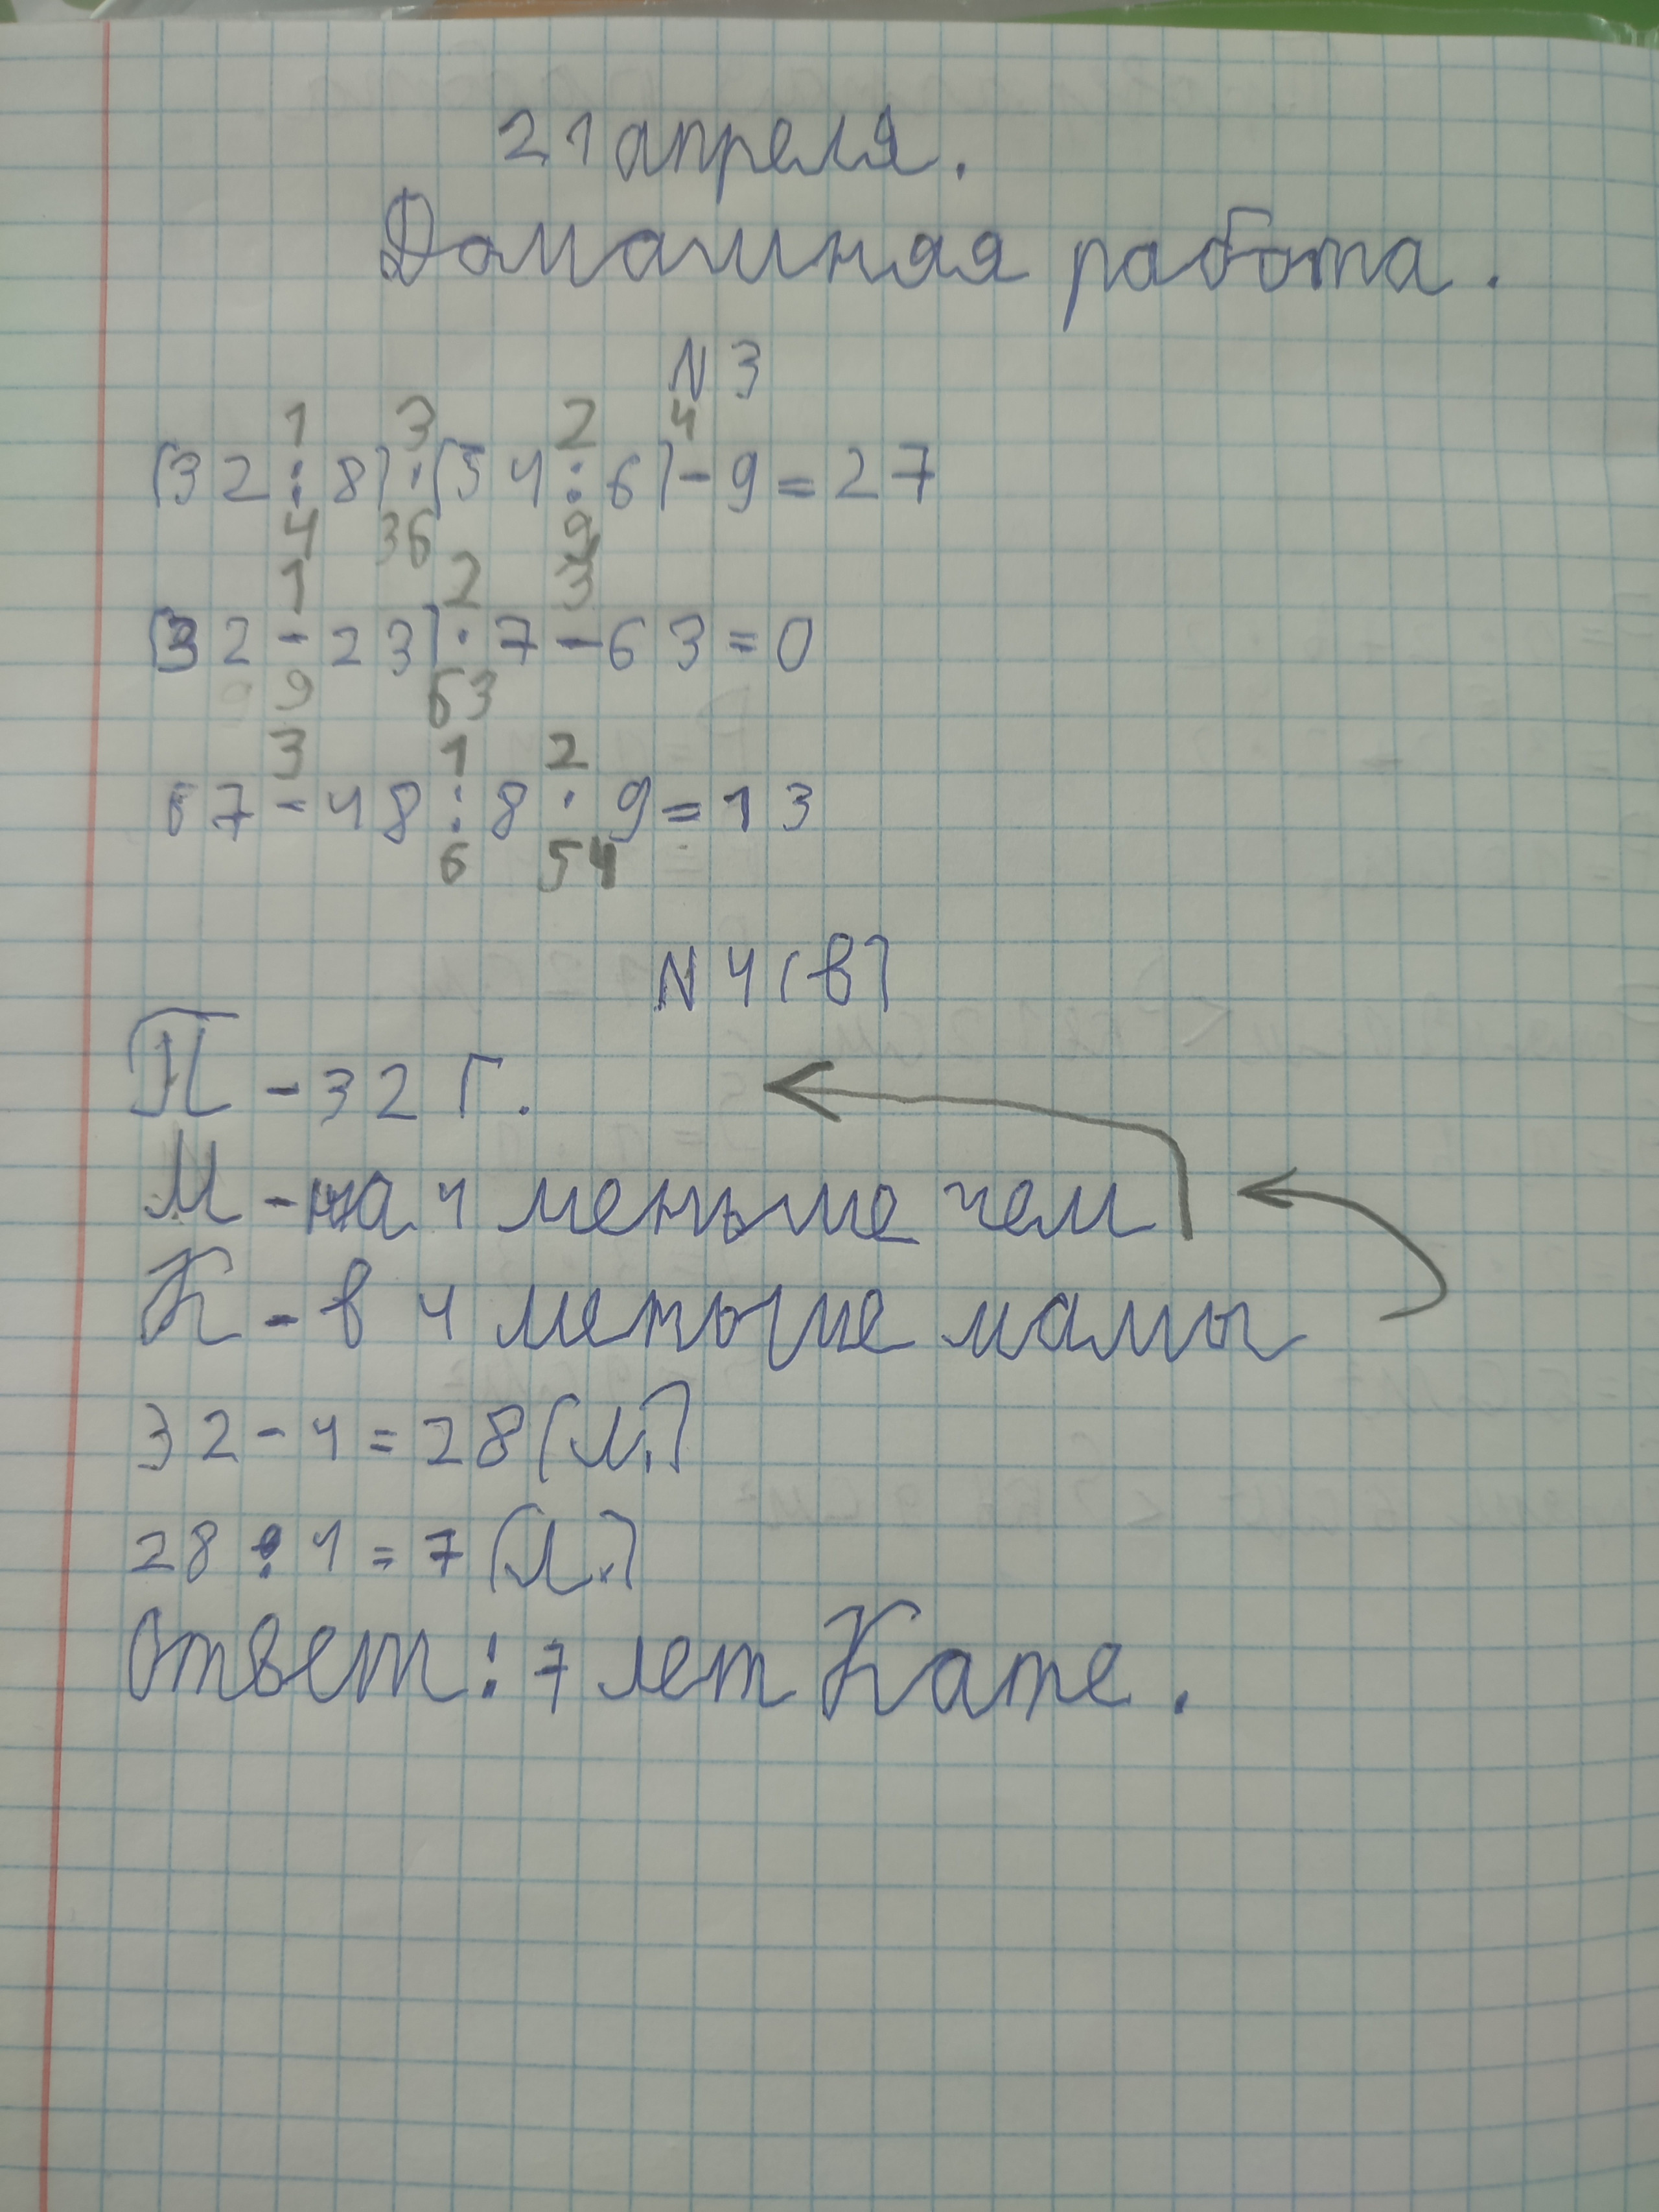 21 апреля.
Домашняя работа.
N 3
1 3 2 4
(32:8)·(54:6)-9=27
4 36 9
1 2 3
(32-23)·7-63=0
9 63
3 1 2
67-48:8·9=13
6 54
N 4(в)
П - 32 г.
М - на 4 меньше чем
К - в 4 меньше мамы
32-4=28(л.)
28:4=7(л.)
Ответ: 7 лет Кате.